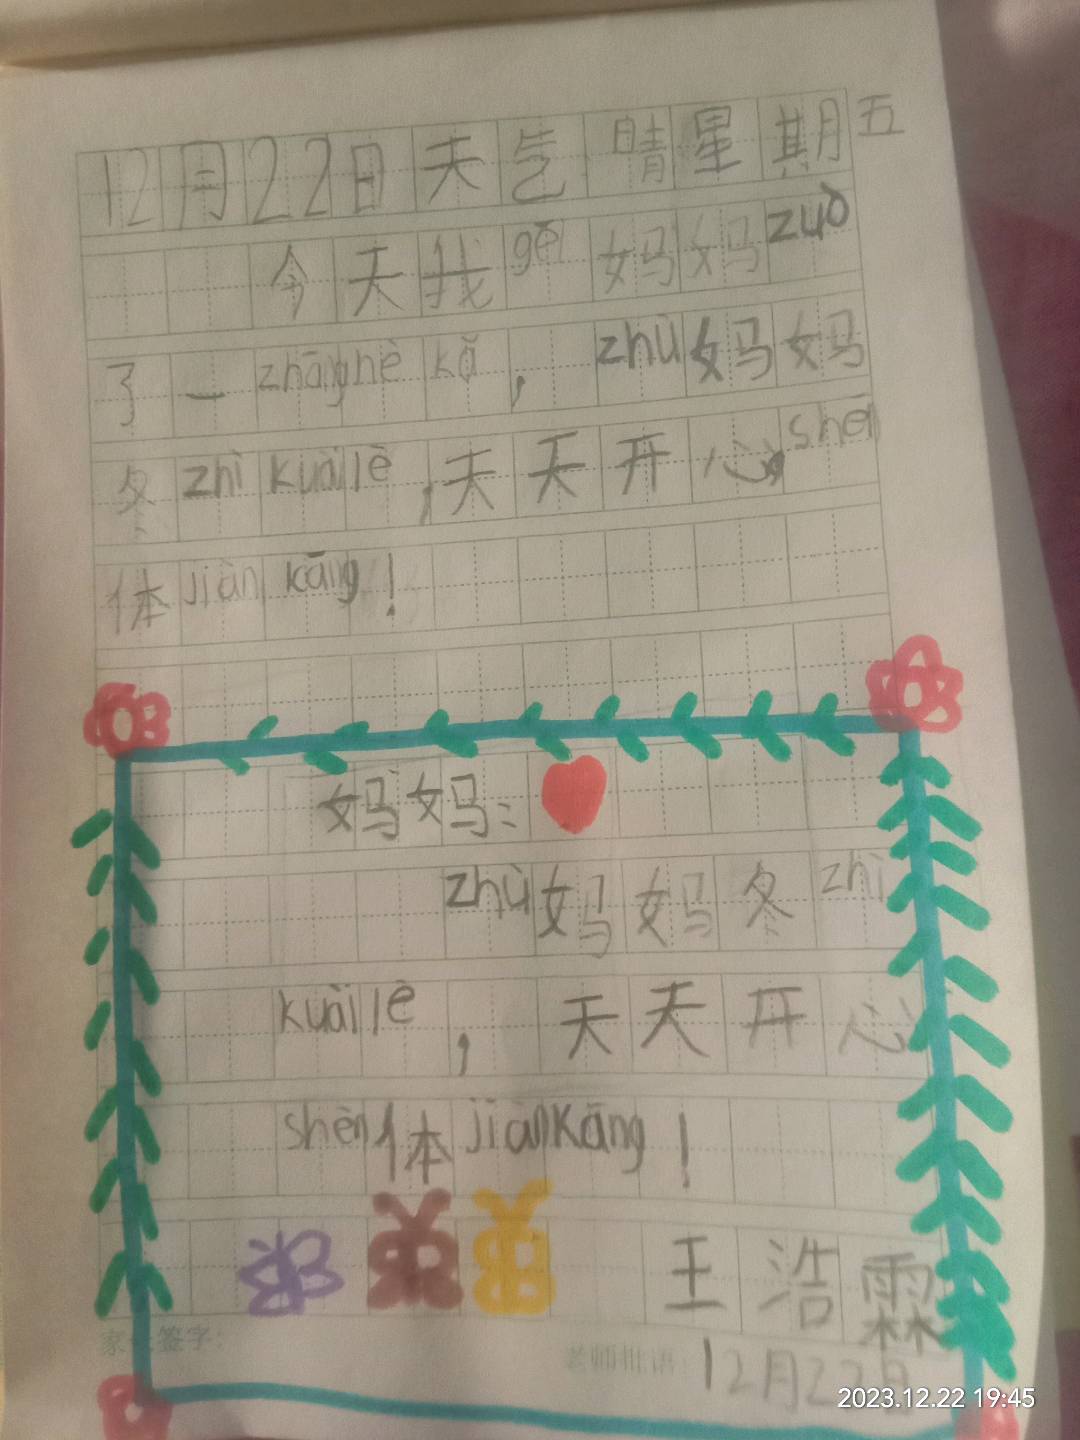 12月22日天气 晴星期五
今天我gěi妈妈zuò
了一zhānghè kǎ，zhù妈妈
冬zhì kuàilè，天天开心，shēn
体jiàn kāng！
妈妈：
zhù妈妈冬zhì
kuàilè，天天开心
shēn体jiànkāng！
王浩霖
家长签字：
老师批语：12月22日
2023.12.22 19:45